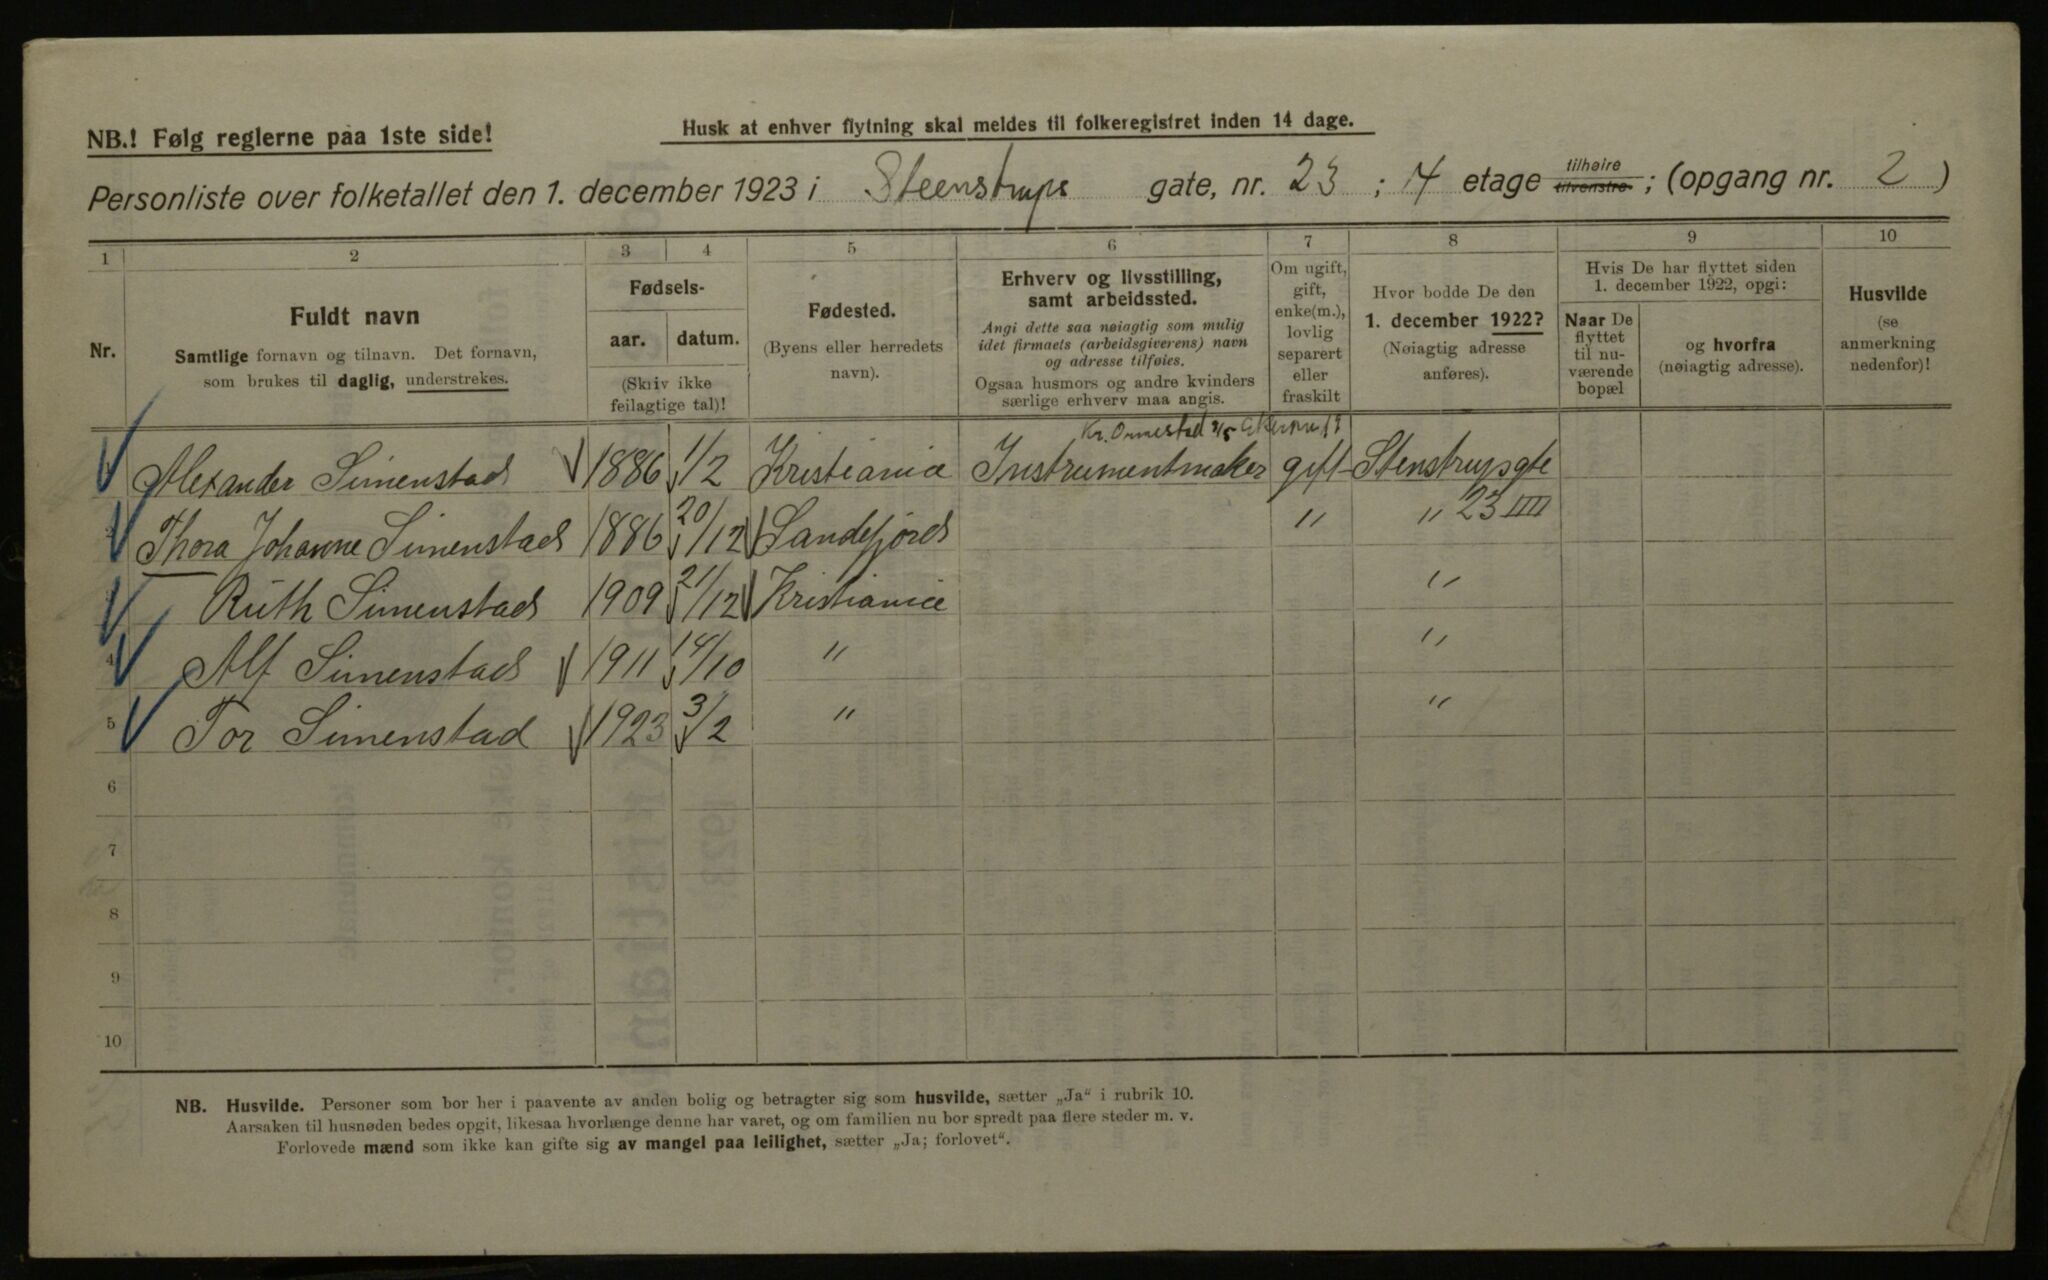 NB.! Følg reglerne paa 1ste side!
Husk at enhver flytning skal meldes til folkeregistret inden 14 dage.
Personliste over folketallet den 1. december 1923 i Steenstrups gate, nr. 23 ; 4 etage tilhøire tilvenstre ; (opgang nr. 2 )
1 2 3 4 5 6 7 8 9 10
Nr.
Fuldt navn
Samtlige fornavn og tilnavn. Det fornavn,
som brukes til daglig, understrekes.
Fødsels-
aar. datum.
(Skriv ikke
feilagtige tal)!
Fødested.
(Byens eller herredets
navn).
Erhverv og livsstilling,
samt arbeidssted.
Angi dette saa nøiagtig som mulig
idet firmaets (arbeidsgiverens) navn
og adresse tilføies.
Ogsaa husmors og andre kvinders
særlige erhverv maa angis.
Om ugift,
gift,
enke(m.),
lovlig
separert
eller
fraskilt
Hvor bodde De den
1. december 1922?
(Nøiagtig adresse
anføres).
Hvis De har flyttet siden
1. december 1922, opgi:
Naar De
flyttet
til nu-
værende
bopæl
og hvorfra
(nøiagtig adresse).
Husvilde
(se
anmerkning
nedenfor)!
Kr. Ormestad
Alexander Simenstad 1886 1/2 Kristiania Instrumentmaker gift Stenstrupsgte
Thora Johanne Simenstad 1886 20/12 Sandefjord " " 23 IIII
Ruth Simenstad 1909 21/12 Kristiania "
4 Alf Simenstad 1911 14/10 " "
5 Tor Simenstad 1923 3/2 " "
6
7
8
9
10
NB. Husvilde. Personer som bor her i paavente av anden bolig og betragter sig som husvilde, sætter „Ja" i rubrik 10.
Aarsaken til husnøden bedes opgit, likesaa hvorlænge denne har varet, og om familien nu bor spredt paa flere steder m. v.
Forlovede mænd som ikke kan gifte sig av mangel paa leilighet, sætter „Ja; forlovet".